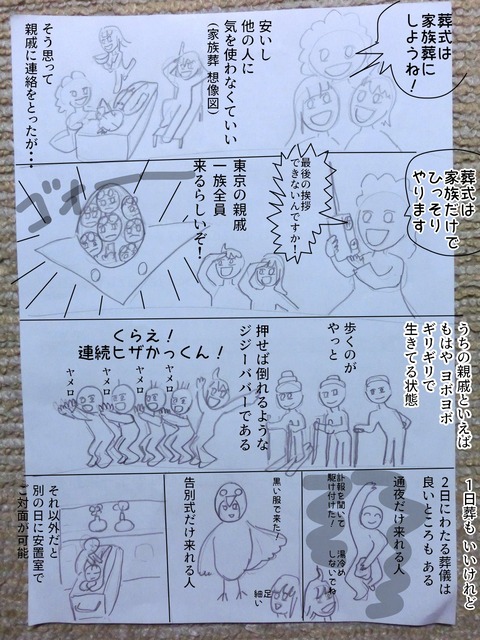 葬式は
家族葬に
しようね！
安いし
他の人に
気を使わなくていい
(家族葬 想像図)
そう思って
親戚に連絡をとったが・・
葬式は
家族だけで
ひっそり
やります
最後の挨拶
できないんですか！
東京の親戚
一族全員
来るらしいぞ！
ゴオー
うちの親戚といえば
もはや ヨボヨボ
ギリギリで
生きてる状態
歩くのが
やっと
押せば倒れるような
ジジーババーである
くらえ！
連続ヒザかっくん！
ヤメロ
ヤメロ
ヤメロ
ヤメロ
１日葬も いいけれど
２日にわたる葬儀は
良いところも ある
通夜だけ来れる人
訃報を聞いて
駆け付けた！
湯冷め
しないでね
告別式だけ来れる人
黒い服で来た！
足
細い
それ以外だと
別の日に安置室で
ご対面が可能